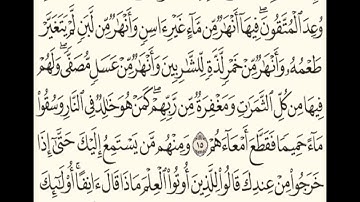 وُعِدَ ٱلْمُتَّقُونَ ۖ فِيهَآ أَنْهَـٰرٌ مِّن مَّآءٍ غَيْرِ ءَاسِنٍ وَأَنْهَـٰرٌ مِّن لَّبَنٍ لَّمْ يَتَغَيَّرْ
طَعْمُهُۥ وَأَنْهَـٰرٌ مِّنْ خَمْرٍ لَّذَّةٍ لِّلشَّـٰرِبِينَ وَأَنْهَـٰرٌ مِّنْ عَسَلٍ مُّصَفًّى ۖ وَلَهُمْ
فِيهَا مِن كُلِّ ٱلثَّمَرَٰتِ وَمَغْفِرَةٌ مِّن رَّبِّهِمْ ۖ كَمَنْ هُوَ خَـٰلِدٌ فِى ٱلنَّارِ وَسُقُوا۟
مَآءً حَمِيمًا فَقَطَّعَ أَمْعَآءَهُمْ ١٥ وَمِنْهُم مَّن يَسْتَمِعُ إِلَيْكَ حَتَّىٰٓ إِذَا
خَرَجُوا۟ مِنْ عِندِكَ قَالُوا۟ لِلَّذِينَ أُوتُوا۟ ٱلْعِلْمَ مَاذَا قَالَ ءَانِفًا ۚ أُو۟لَـٰٓئِكَ